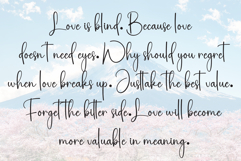 Love is blind. Because love
doesn't need eyes. Why should you regret
when love breaks up. Justtake the best value.
Forget the bitter side. Love will become
more valuable in meaning.